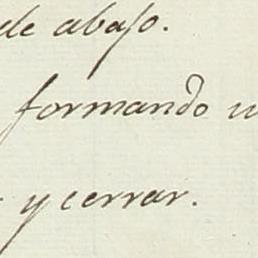 de abajo.
formando
y cerrar.